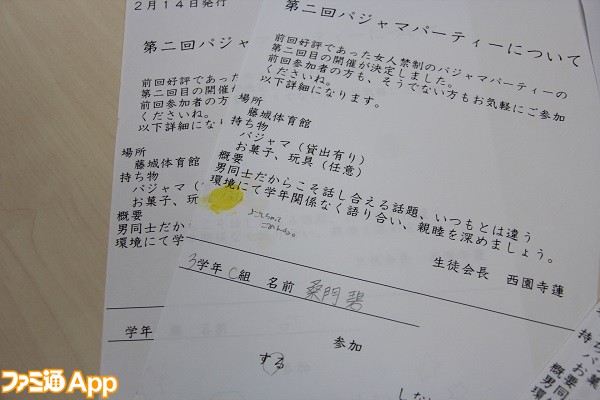 2月14日発行
第二回パジャ
前回好評であっ
第二回目の開催
前回参加者の方も
くださいね。
以下詳細になり
場所
藤城体育館
持ち物
パジャマ（
お菓子、玩
概要
男同士だか
環境にて学
学年
第二回パジャマパーティーについて
前回好評であった女人禁制のパジャマパーティーの
第二回目の開催が決定しました。
前回参加者の方も、そうでない方もお気軽にご参加
くださいね。
以下詳細になります。
場所
藤城体育館
持ち物
パジャマ（貸出有り）
お菓子、玩具（任意）
概要
男同士だからこそ話し合える話題、いつもとは違う
環境にて学年関係なく語り合い、親睦を深めましょう。
よごしちゃって
ごめんなさい。
生徒会長 西園寺蓮
3学年 C組 名前 桑門 碧
参加
する
しな
持ち
パ
お菓
概要
男同
環境
ファミ通App